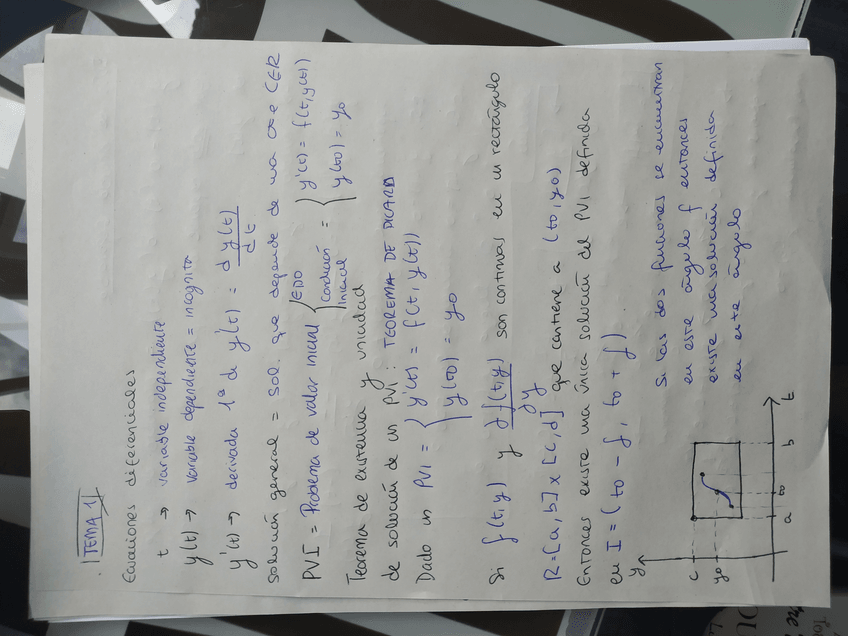 TEMA 1
Ecuaciones diferenciales
t → variable independiente
y(t) → variable dependiente = incognita
y'(t) → derivada 1ª de y'(t) = d y(t) / dt
solución general = sol. que depende de una cte C∈R
PVI = Problema de valor inicial { EDO Condición Inicial = { y'(t) = f(t, y(t)) y(t0) = y0
Teorema de existencia y unicidad
de solución de un PVI: TEOREMA DE PICARD
Dado un PVI = { y'(t) = f(t, y(t)) y(t0) = y0
Si f(t,y) y ∂f(t,y) / ∂y son continuas en un rectángulo
R = [a,b] x [c,d] que contiene a (t0, y0)
Entonces existe una única solución del PVI definida
en I = (t0 - f, t0 + f)
y
c
y0
a
t0
b
t
Si las dos funciones se encuentran
en este ángulo f entonces
existe una solución definida
en este ángulo